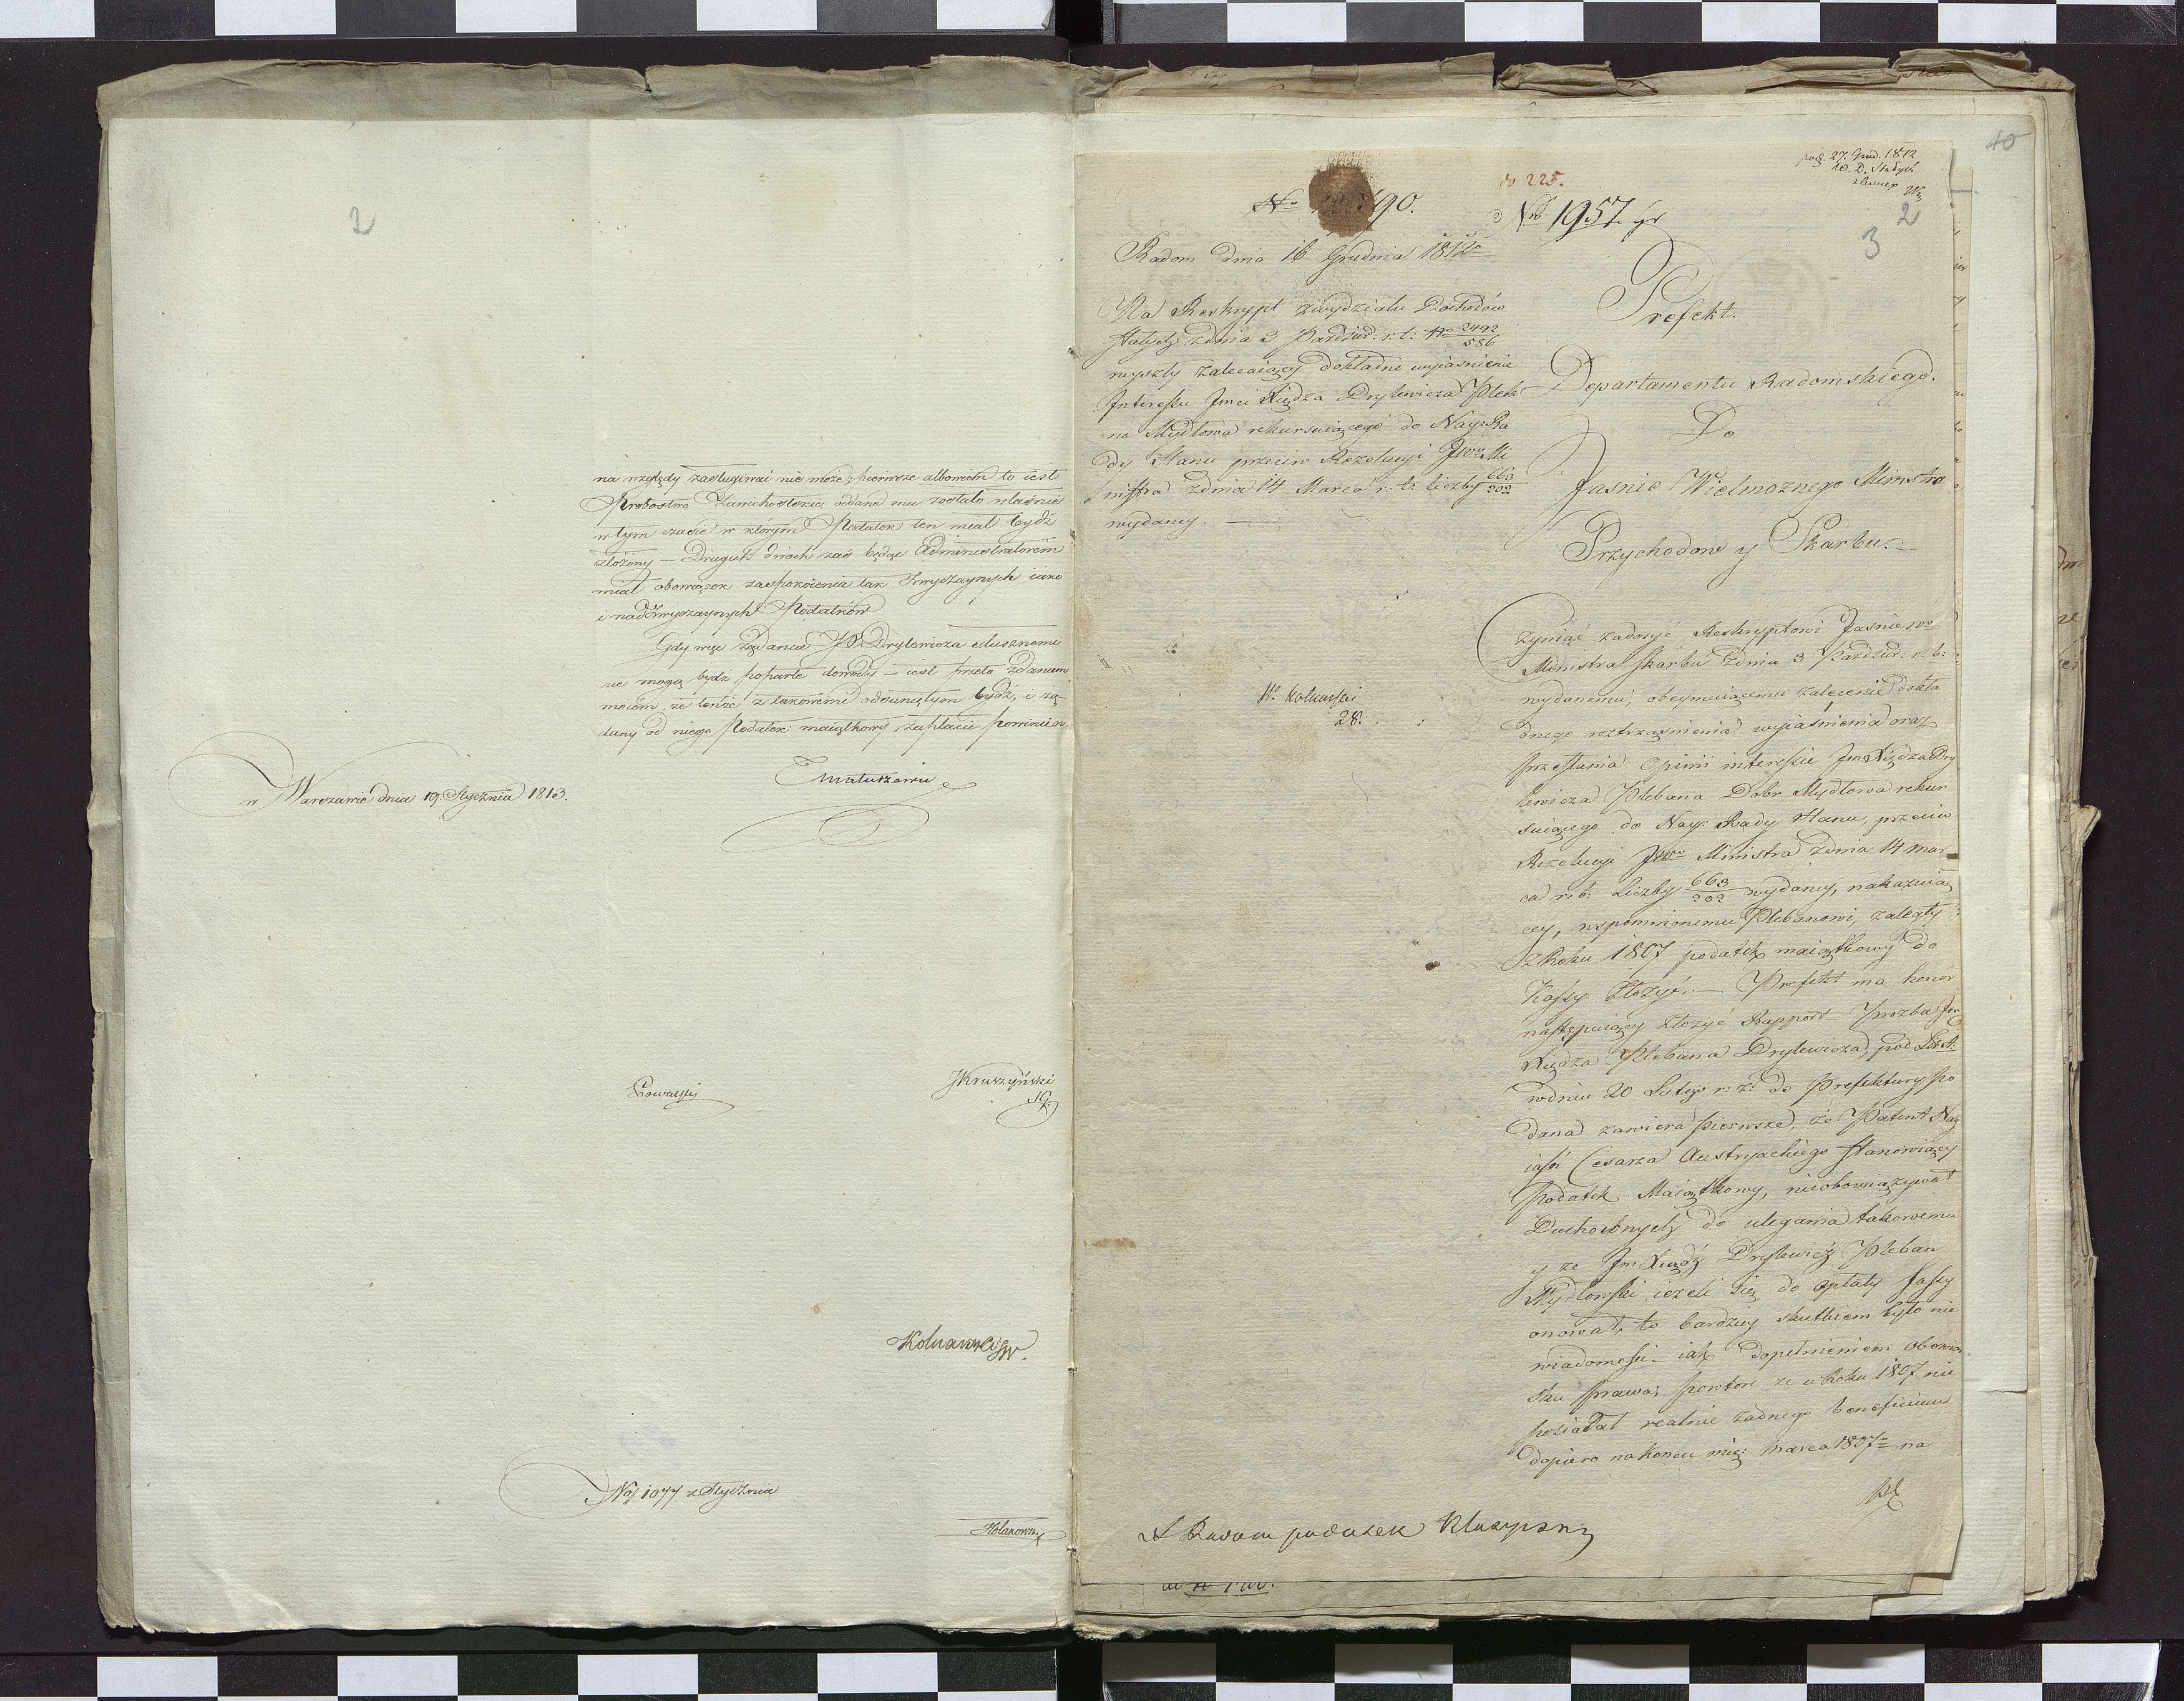 2
na względy zasługiwać nie może; pierwsze albowiem to iest
Probostwo Zawichostskie oddane mu zostało właśnie
w tym czasie w którym Podatek ten miał bydź
złożony — Drugich dwóch zaś będąc Administratorem
miał obowiązek zaspokoienia tak Zwyczaynych iako
i nadzwyczaynych Podatków
Gdy więc żądania JX. Drylewicza słusznemi
nie mogą bydź poparte dowody — iest przeto zdaniem
moiem, że tenże z takowemi odsuniętym bydź, i żą-
dany od niego Podatek maiątkowy zapłacić powinien
w Warszawie dnia 19. Stycznia 1813.
JKruszyński
SG.
No 1077 z Stycznia
40
do 225.
27. Grud. 1812
No 90.
Nro 1957
2
3
Radom dnia 16 Grudnia 1812
Na Reskrypt z wydziału Dochodów
stałych z dnia 3 Paźdźier: r. t: No 2492/586
wyszły zalecaiący dokładne wyiaśnienie
Interessu Jmci Xiędza Drylewicza Pleb
na Mydłowa rekursuiącego do Nay: Ra
dy Stanu przeciw Rezolucyi JWo Mi
nistra z dnia 14 Marca r. t: liczby 663/202
wydaney. —
28.
Prefekt
Departamentu Radomskiego.
Do
Jaśnie Wielmożnego Ministra
Przychodow y Skarbu. —
Czyniąc zadosyć Reskryptowi Jaśnie Wo
Ministra Skarbu z dnia 3 Paźdźier. r. b:
wydanemu, obeymuiącemu zalecenie dokła
dnego roztrząśnienia wyiaśnienia oraz
przesłania Opinii interessie Jm Xiędza Dry
lewicza Plebana Dobr Mydłowa rekur
suiącego do Nay: Rady Stanu, przeciw
Rezolucyi JWo Ministra z dnia 14 mar
ca r. b: Liczby 663/202 wydaney, nakazuią
cey, wspomnionemu Plebanowi, zaległy
z Roku 1807 podatek maiątkowy do
Kassy złożyć. — Prefekt ma honor
następuiący złożyć Rapport — Prozba Jm
Xiędza Plebana Drylewicza, pod Lit A:
w dniu 20 Lutego r: z: do Prefektury po
dana zawiera pierwsze, że Patent Nay
iaśn Cesarza Austryackiego stanowiący
podatek Maiątkowy, nieobowiązywał
Duchownych do ulegania takowemu
y że Jm Xiądz Drylewicz Pleban
Mydłowski ieżeli się do opłaty fassy
onował, to bardziey skutkiem było nie
wiadomości — iak dopełnieniem obowią
sku prawa; powtore że w Roku 1807 nie
posiadał realnie żadnego beneficium
dopiero na koncu mie: Marca 1807 na
A Radom podatek Klassyczny